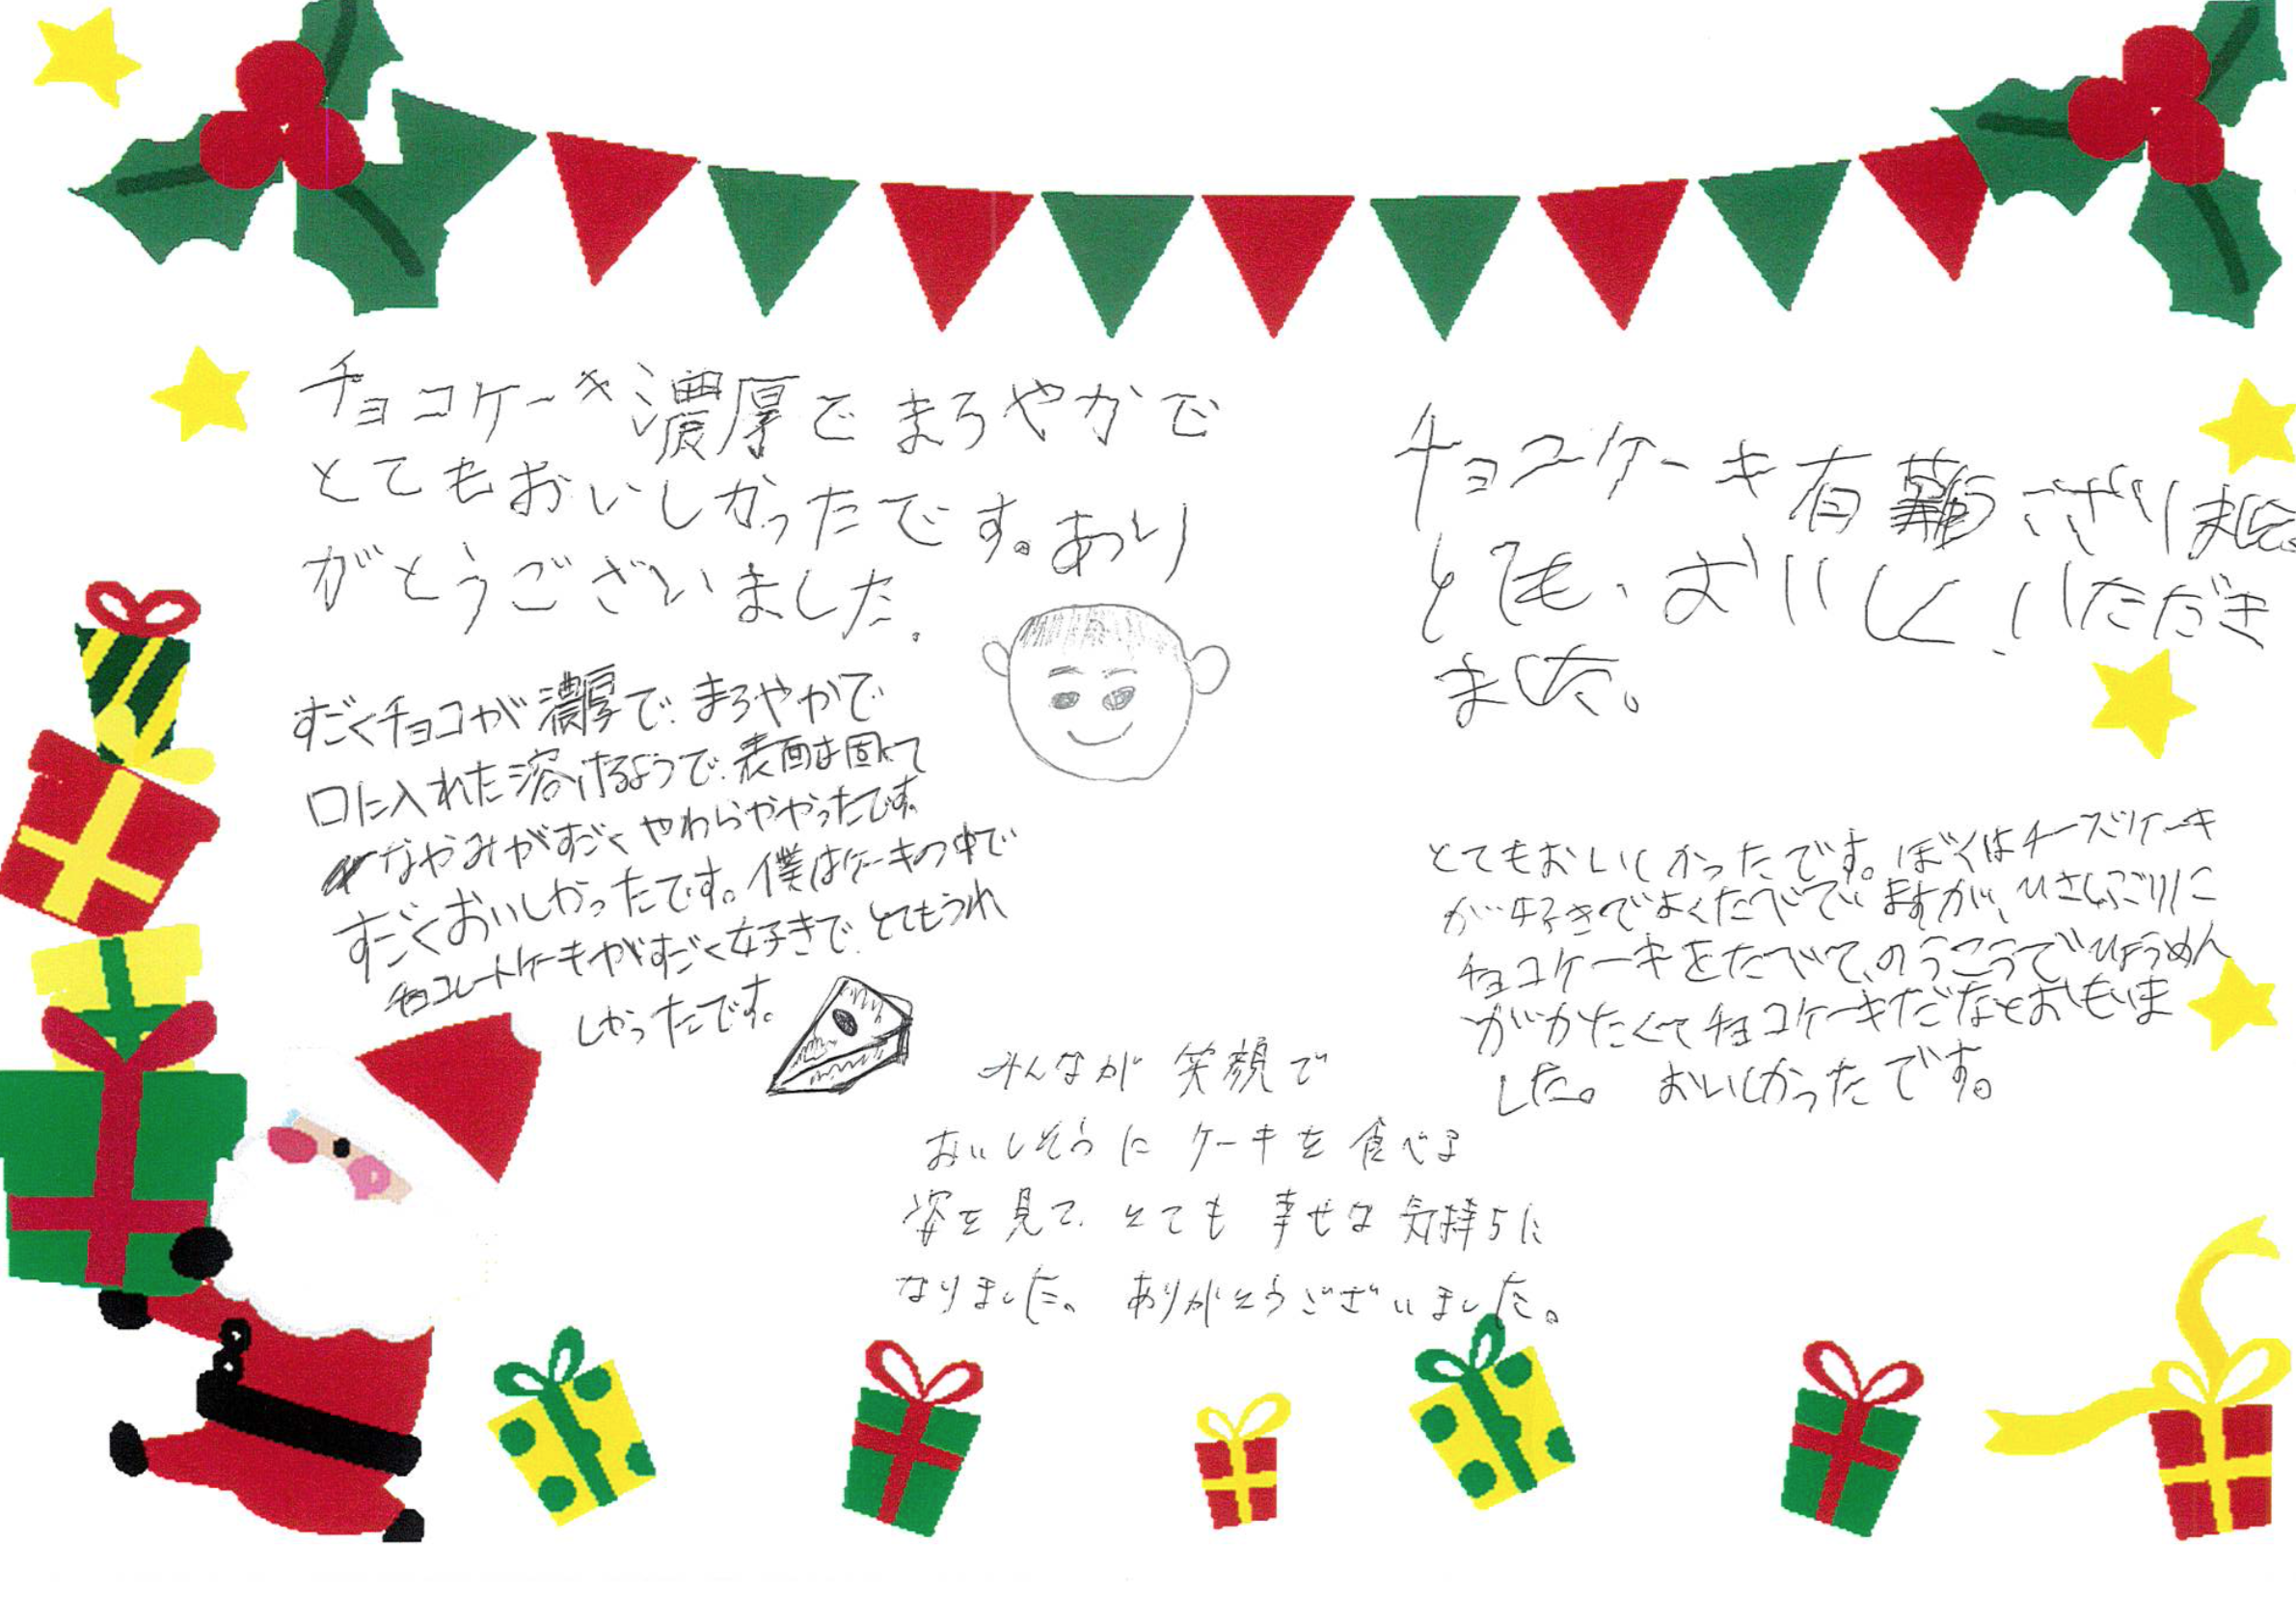 チョコケーキ濃厚でまろやかで
とてもおいしかったです。あり
がとうございました.
チョコケーキ有難うござりまし
とても、おいしく、いただき
ました。
すごくチョコが濃厚で、まろやかで
口に入れた溶けるようで、表面は固くて
なやみがすごくやわらややったです。
すごくおいしかったです。僕はケーキの中で
チョコレートケーキがすごく好きで、とてもうれ
しかったです。
とてもおいしかったです。ぼくはチーズケーキ
が好きでよくたべていますが、ひさしぶりに
チョコケーキをたべて、のうこうでひょうめん
がかたくてチョコケーキだなとおもいま
した。 おいしかったです。
みんなが 笑顔で
おいしそうに ケーキを 食べる
姿を見て、とても 幸せな 気持ちに
なりました。 ありがとうございました。